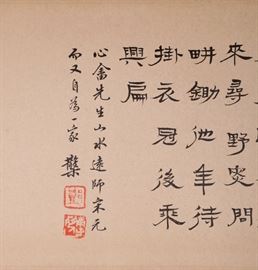 來尋野叟問
畊鋤他年待
掛衣冠後乘
興扁
心畬先生山水遠師宋元
而又自為一家